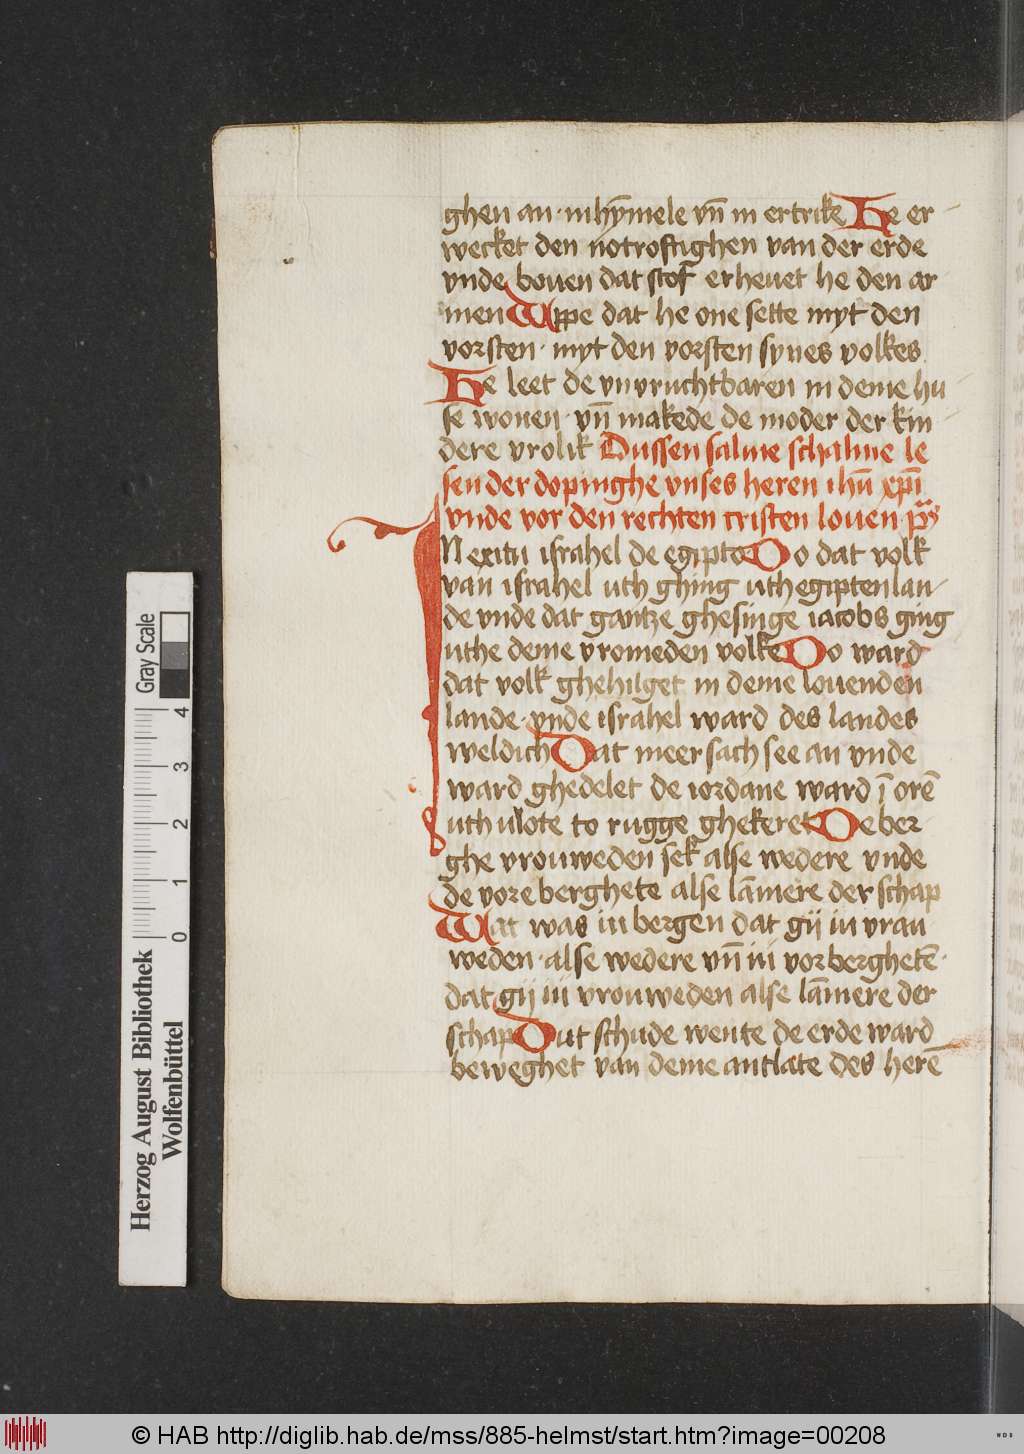 ghen an · in hȳmele vn̄ in ertrike He er
wecket den notroftighen van der erde
vnde bouen dat stof erheuet he den ar
men Uppe dat he one sette myt den
vorsten · myt den vorsten synes volkes
He leet de vnvruchtbaren in deme hu
se wonen · vn̄ makede de moder der kin
dere vrolik Dussen salme schalme le
sen der dopinghe vnses heren ihū xp̄i
vnde vor den rechten cristen louen · p̄s
IN exitu israhel de egipto Do dat volk
van israhel uth ghing uth egipten lan
de vnde dat gantze ghesinge iacobs ging
uthe deme vromeden volke Do ward
dat volk ghehilget in deme louenden
lande · vnde israhel ward des landes
weldich Dat meer sach see an vnde
ward ghedelet de iordane ward ī orē
uthvlote to rugge ghekeret De ber
ghe vrouweden sek alse wedere vnde
de voreberghete alse lāmere der schap
Wat was iu bergen dat gij iu vrau
weden · alse wedere vn̄ iu vorberghetē ·
dat gij iu vrouweden alse lāmere der
schap Dut schude wente de erde ward
beweghet van deme antlate des herē
Herzog August Bibliothek
Wolfenbüttel
Gray Scale
0 1 2 3 4
© HAB http://diglib.hab.de/mss/885-helmst/start.htm?image=00208
WDB